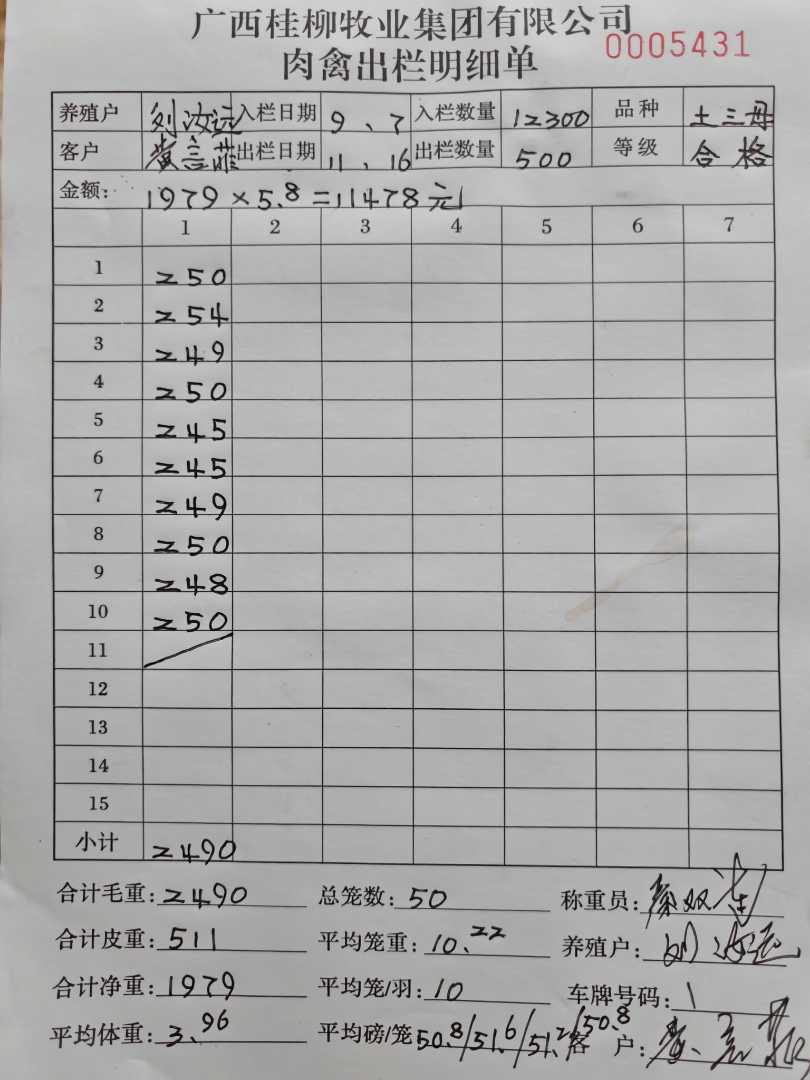 广西桂柳牧业集团有限公司
肉禽出栏明细单 0005431
养殖户 刘汝远 入栏日期 9、7 入栏数量 12300 品种 土三母
客户 黄言菲 出栏日期 11、16 出栏数量 500 等级 合格
金额: 1979×5.8=11478元
1 2 3 4 5 6 7
1 250
2 254
3 249
4 250
5 245
6 245
7 249
8 250
9 248
10 250
11
12
13
14
15
小计 2490
合计毛重: 2490 总笼数: 50 称重员:
合计皮重: 511 平均笼重: 10.22 养殖户: 刘汝远
合计净重: 1979 平均笼/羽: 10 车牌号码:
平均体重: 3.96 平均磅/笼 50.8/51.6/51.2/50.8 客 户: 黄言菲